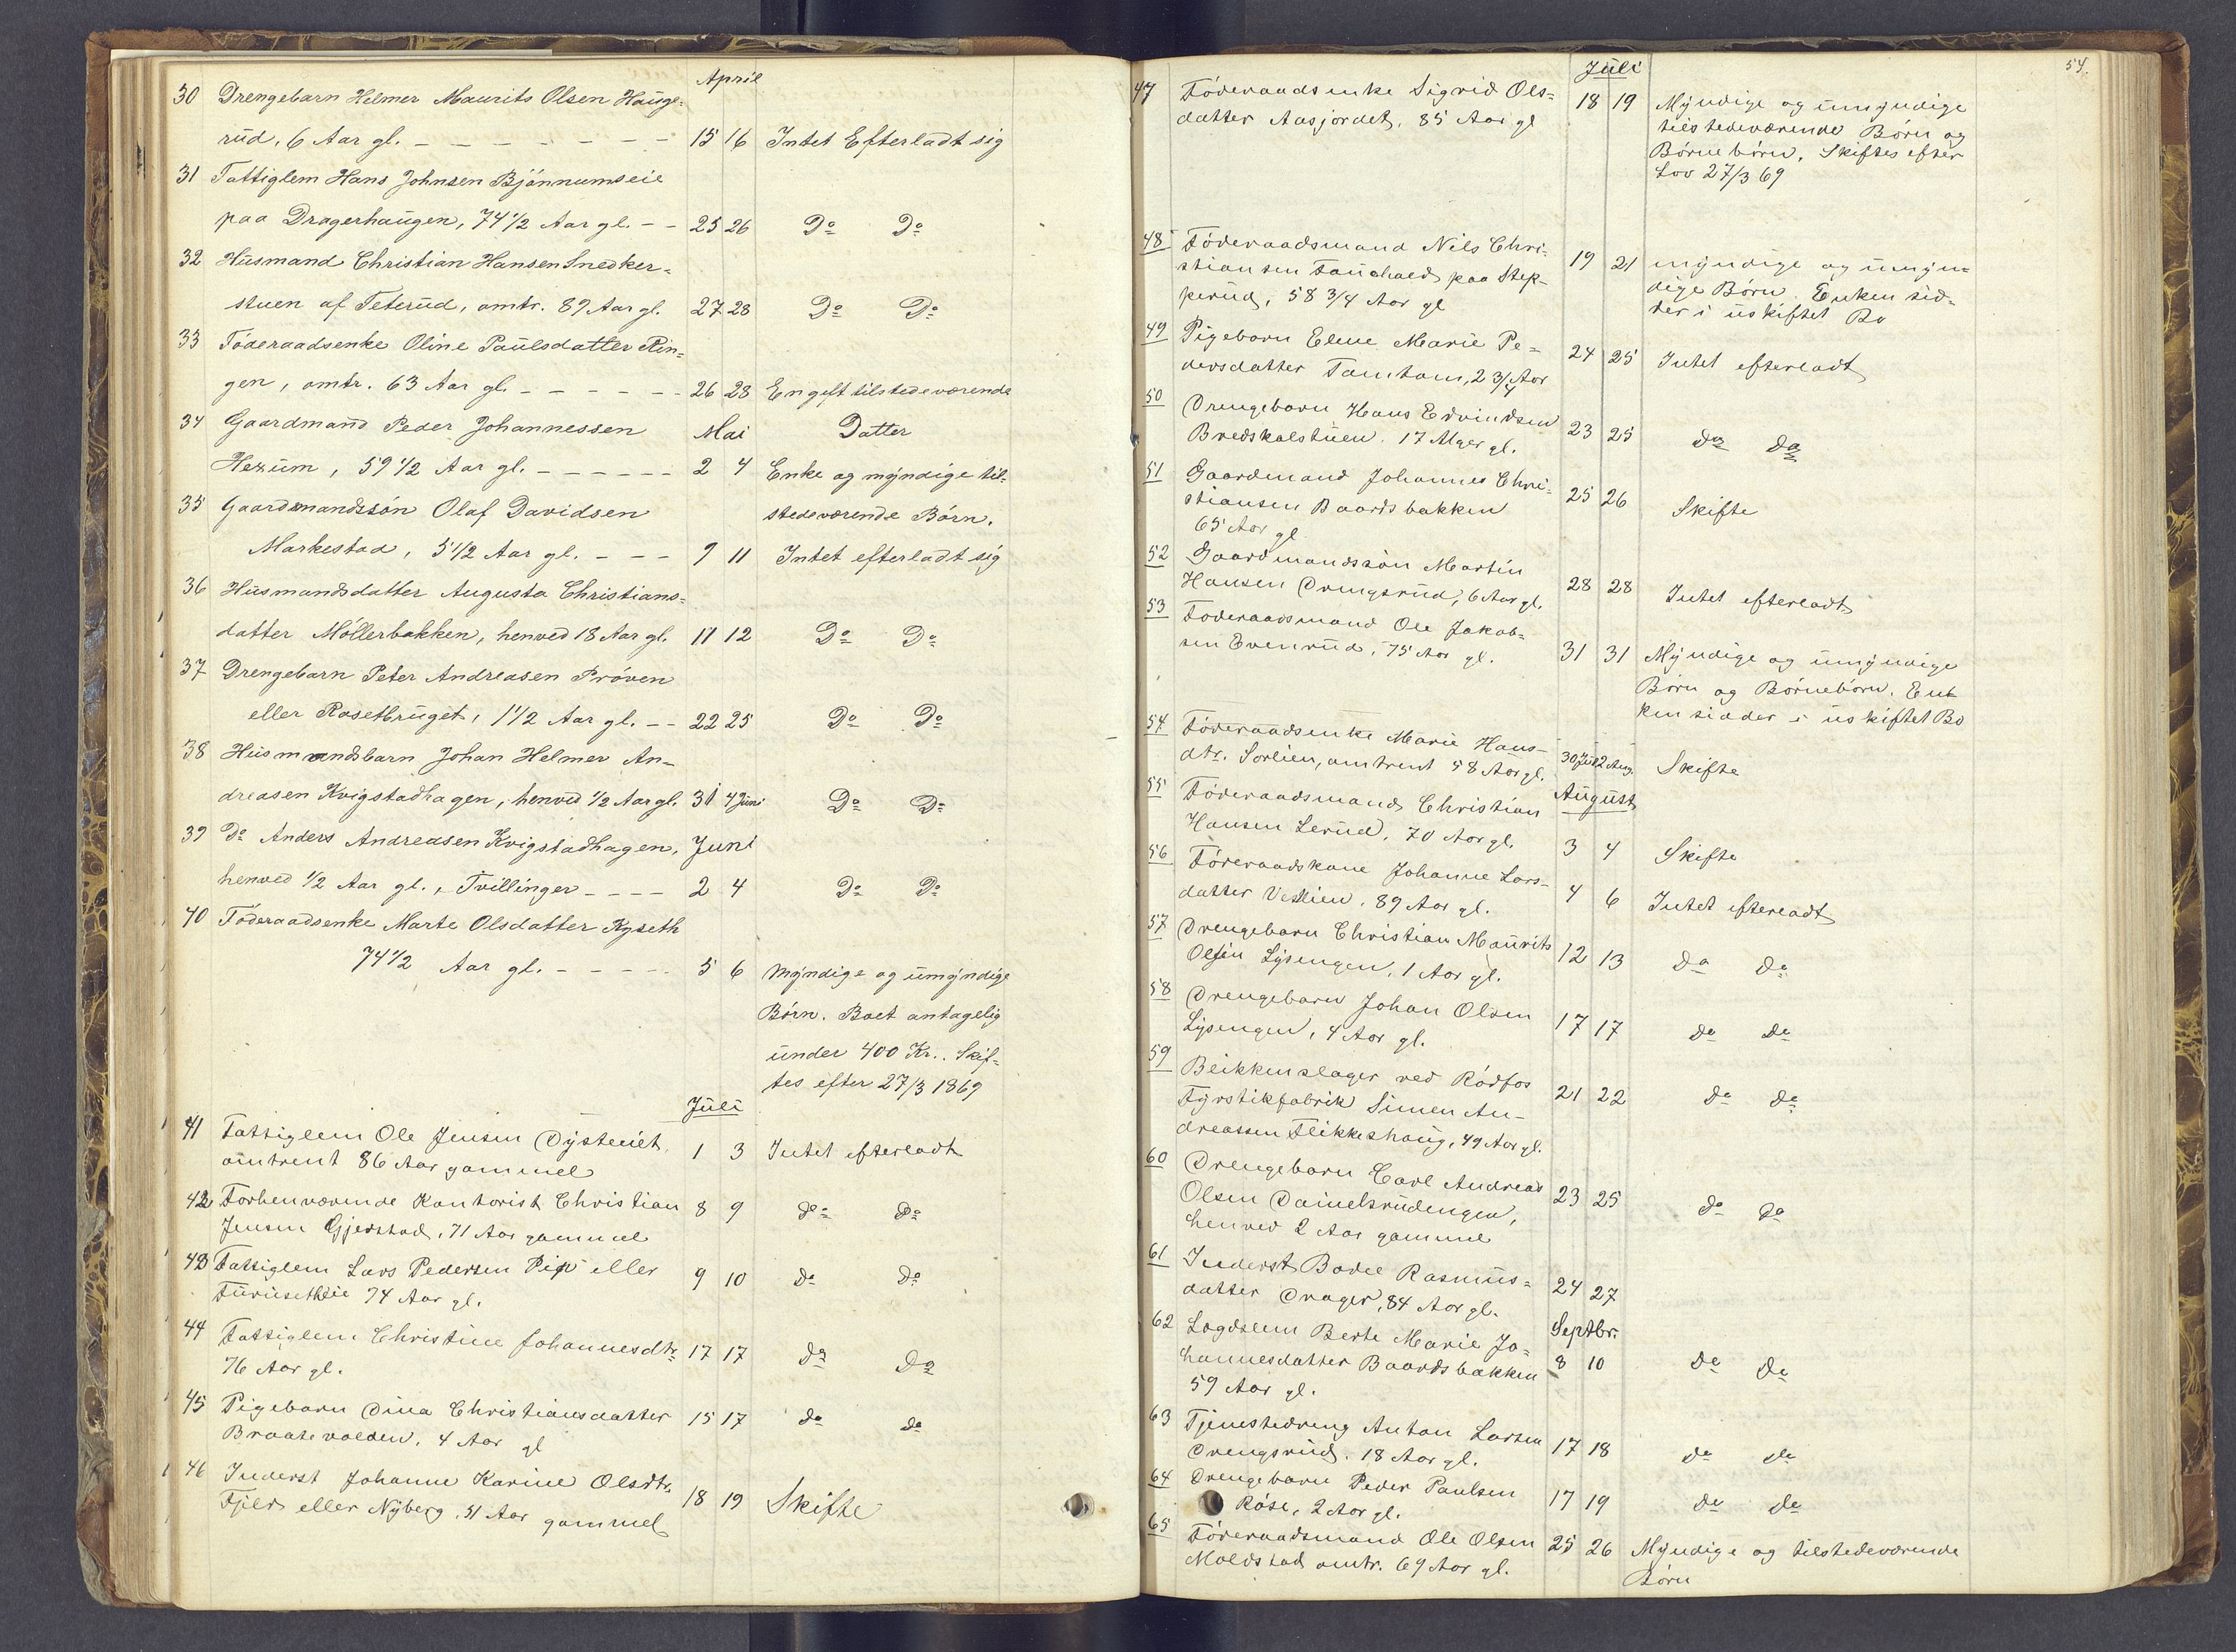 April
30 Drengebarn Helmer Maurits Olsen Hauge-
rud, 6 Aar gl. - - - - - - - 15 16 Intet Efterladt sig
31 Fattiglem Hans Johnsen Bjönnumseie
paa Dragerhaugen, 74 1/2 Aar gl. - - 25 26 Do Do
32 Husmand Christian Hansen Snedker-
stuen af Teterud, omtr. 89 Aar gl. 27 28 Do Do
33 Föderaadsenke Oline Paulsdatter Rin-
gen, omtr. 63 Aar gl. - - - - - - 26 28 En gift tilstedeværende
34 Gaardmand Peder Johannessen Mai Datter
Hexum, 59 1/2 Aar gl. - - - - - - 2 4 Enke og myndige til-
35 Gaardmandssön Olaf Davidsen stedeværende Börn.
Markestad, 5 1/2 Aar gl. - - - 9 11 Intet efterladt sig
36 Husmandsdatter Augusta Christians-
datter Möllerbakken, henved 18 Aar gl. 11 12 Do Do
37 Drengebarn Peter Andreasen Pröven
eller Rosetbruget, 1 1/2 Aar gl. - - 22 25 Do Do
38 Husmandsbarn Johan Helmer An-
dreasen Kvigstadhagen, henved 1/2 Aar gl. 31 4 Juni Do Do
39 Do Anders Andreasen Kvigstadhagen, Juni
henved 1/2 Aar gl., Tvillinger - - - - 2 4 Do Do
40 Föderaadsenke Marte Olsdatter Kyseth
74 1/2 Aar gl. - - - - - 5 6 Myndige og umyndige
Börn. Boet antagelig
under 400 Kr.. Skif-
tes efter 27/3 1869
Juli
41 Fattiglem Ole Jensen Dysteeiet,
omtrent 86 Aar gammel 1 3 Intet efterladt
42 Forhenværende Kontorist Christian 8 9 do do
Jensen Gjerstad, 71 Aar gammel
43 Fattiglem Lars Pedersen Pip eller 9 10 do do
Furuseteie 74 Aar gl.
44 Fattiglem Christine Johannesdtr. 17 17 do do
76 Aar gl.
45 Pigebarn Dina Christiansdatter 15 17 do do
Braatevolden, 4 Aar gl
46 Inderst Johanne Karine Olsdtr.
Fjeld eller Nyberg, 51 Aar gammel 18 19 Skifte
54.
Juli
47 Föderaadsenke Sigrid Ols= 18 19 Myndige og umyndige
datter Aasjordet, 85 Aar gl tilstedeværende Börn og
Börnebörn. Skiftes efter
Lov 27/3 69
48 Föderaadsmand Nils Chri-
stiansen Fauchald paa Step- 19 21 myndige og umyn=
perud, 58 3/4 Aar gl dige Börn. Enken sid-
der i uskiftet Bo
49 Pigebarn Elene Marie Pe= 24 25 Intet efterladt
dersdatter Tomtom, 2 3/4 Aar
50 Drengebarn Hans Edvindsen 23 25 do do
Bredskalstuen, 17 Uger gl.
51 Gaardmand Johannes Chri- 25 26 Skifte
stiansen Baardsbakken
65 Aar gl
52 Gaardmandssön Martin
Hansen Drengsrud, 6 Aar gl. 28 28 Intet efterladt
53 Föderaadsmand Ole Jakob-
sen Evenrud, 75 Aar gl. 31 31 Myndige og umyndige
Börn og Börnebörn. En-
ken sidder i uskiftet Bo
54 Föderaadsenke Marie Hans-
dtr. Sorlien, omtrent 58 Aar gl. 30 Juli 2 Aug. Skifte
55 Föderaadsmand Christian August
Hansen Lerud, 70 Aar gl. 3 4 Skifte
56 Föderaadskone Johanne Lars-
datter Veslien, 89 Aar gl. 4 6 Intet efterladt
57 Drengebarn Christian Maurits
Olsen Lysengen, 1 Aar gl. 12 13 do do
58 Drengebarn Johan Olsen
Lysengen, 4 Aar gl. 17 17 do do
59 Blikkenslager ved Rödfos
Fyrstikfabrik Simen An- 21 22 do do
dreassen Flikkeshaug, 49 Aar gl.
60 Drengebarn Carl Andreas
Olsen Danielsrudengen, 23 25 do do
henved 2 Aar gammel
61 Inderst Bodil Rasmus=
datter Drager, 84 Aar gl. 24 27
62 Lægdslem Berte Marie Jo- Septbr.
hannesdatter Baardsbakken 8 10 do do
59 Aar gl.
63 Tjenestedreng Anton Larsen
Drengsrud, 18 Aar gl. 17 18 do do
64 Drengebarn Peder Paulsen
Röse, 2 Aar gl. 17 19 do do
65 Föderaadsmand Ole Olsen 25 26 Myndige og tilstedeværende
Moldstad omtr. 69 Aar gl. Börn